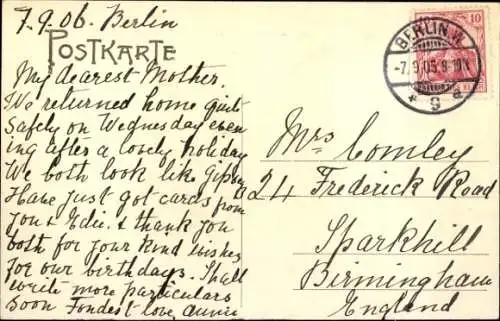 7.9.06. Berlin
POSTKARTE
My dearest Mother.
We returned home quite
Safely on Wednesday even
ing after a lovely holiday
We both look like Gipsies
Have just got cards from
you & Edie. & thank you
both for your kind wishes
for our birthdays. Shall
write more particulars
Soon Fondest love Annie
10
BERLIN W.
-7.9.05.8-9
* 9 d
Mrs Comley
24 Frederick Road
Sparkhill
Birmingham
England